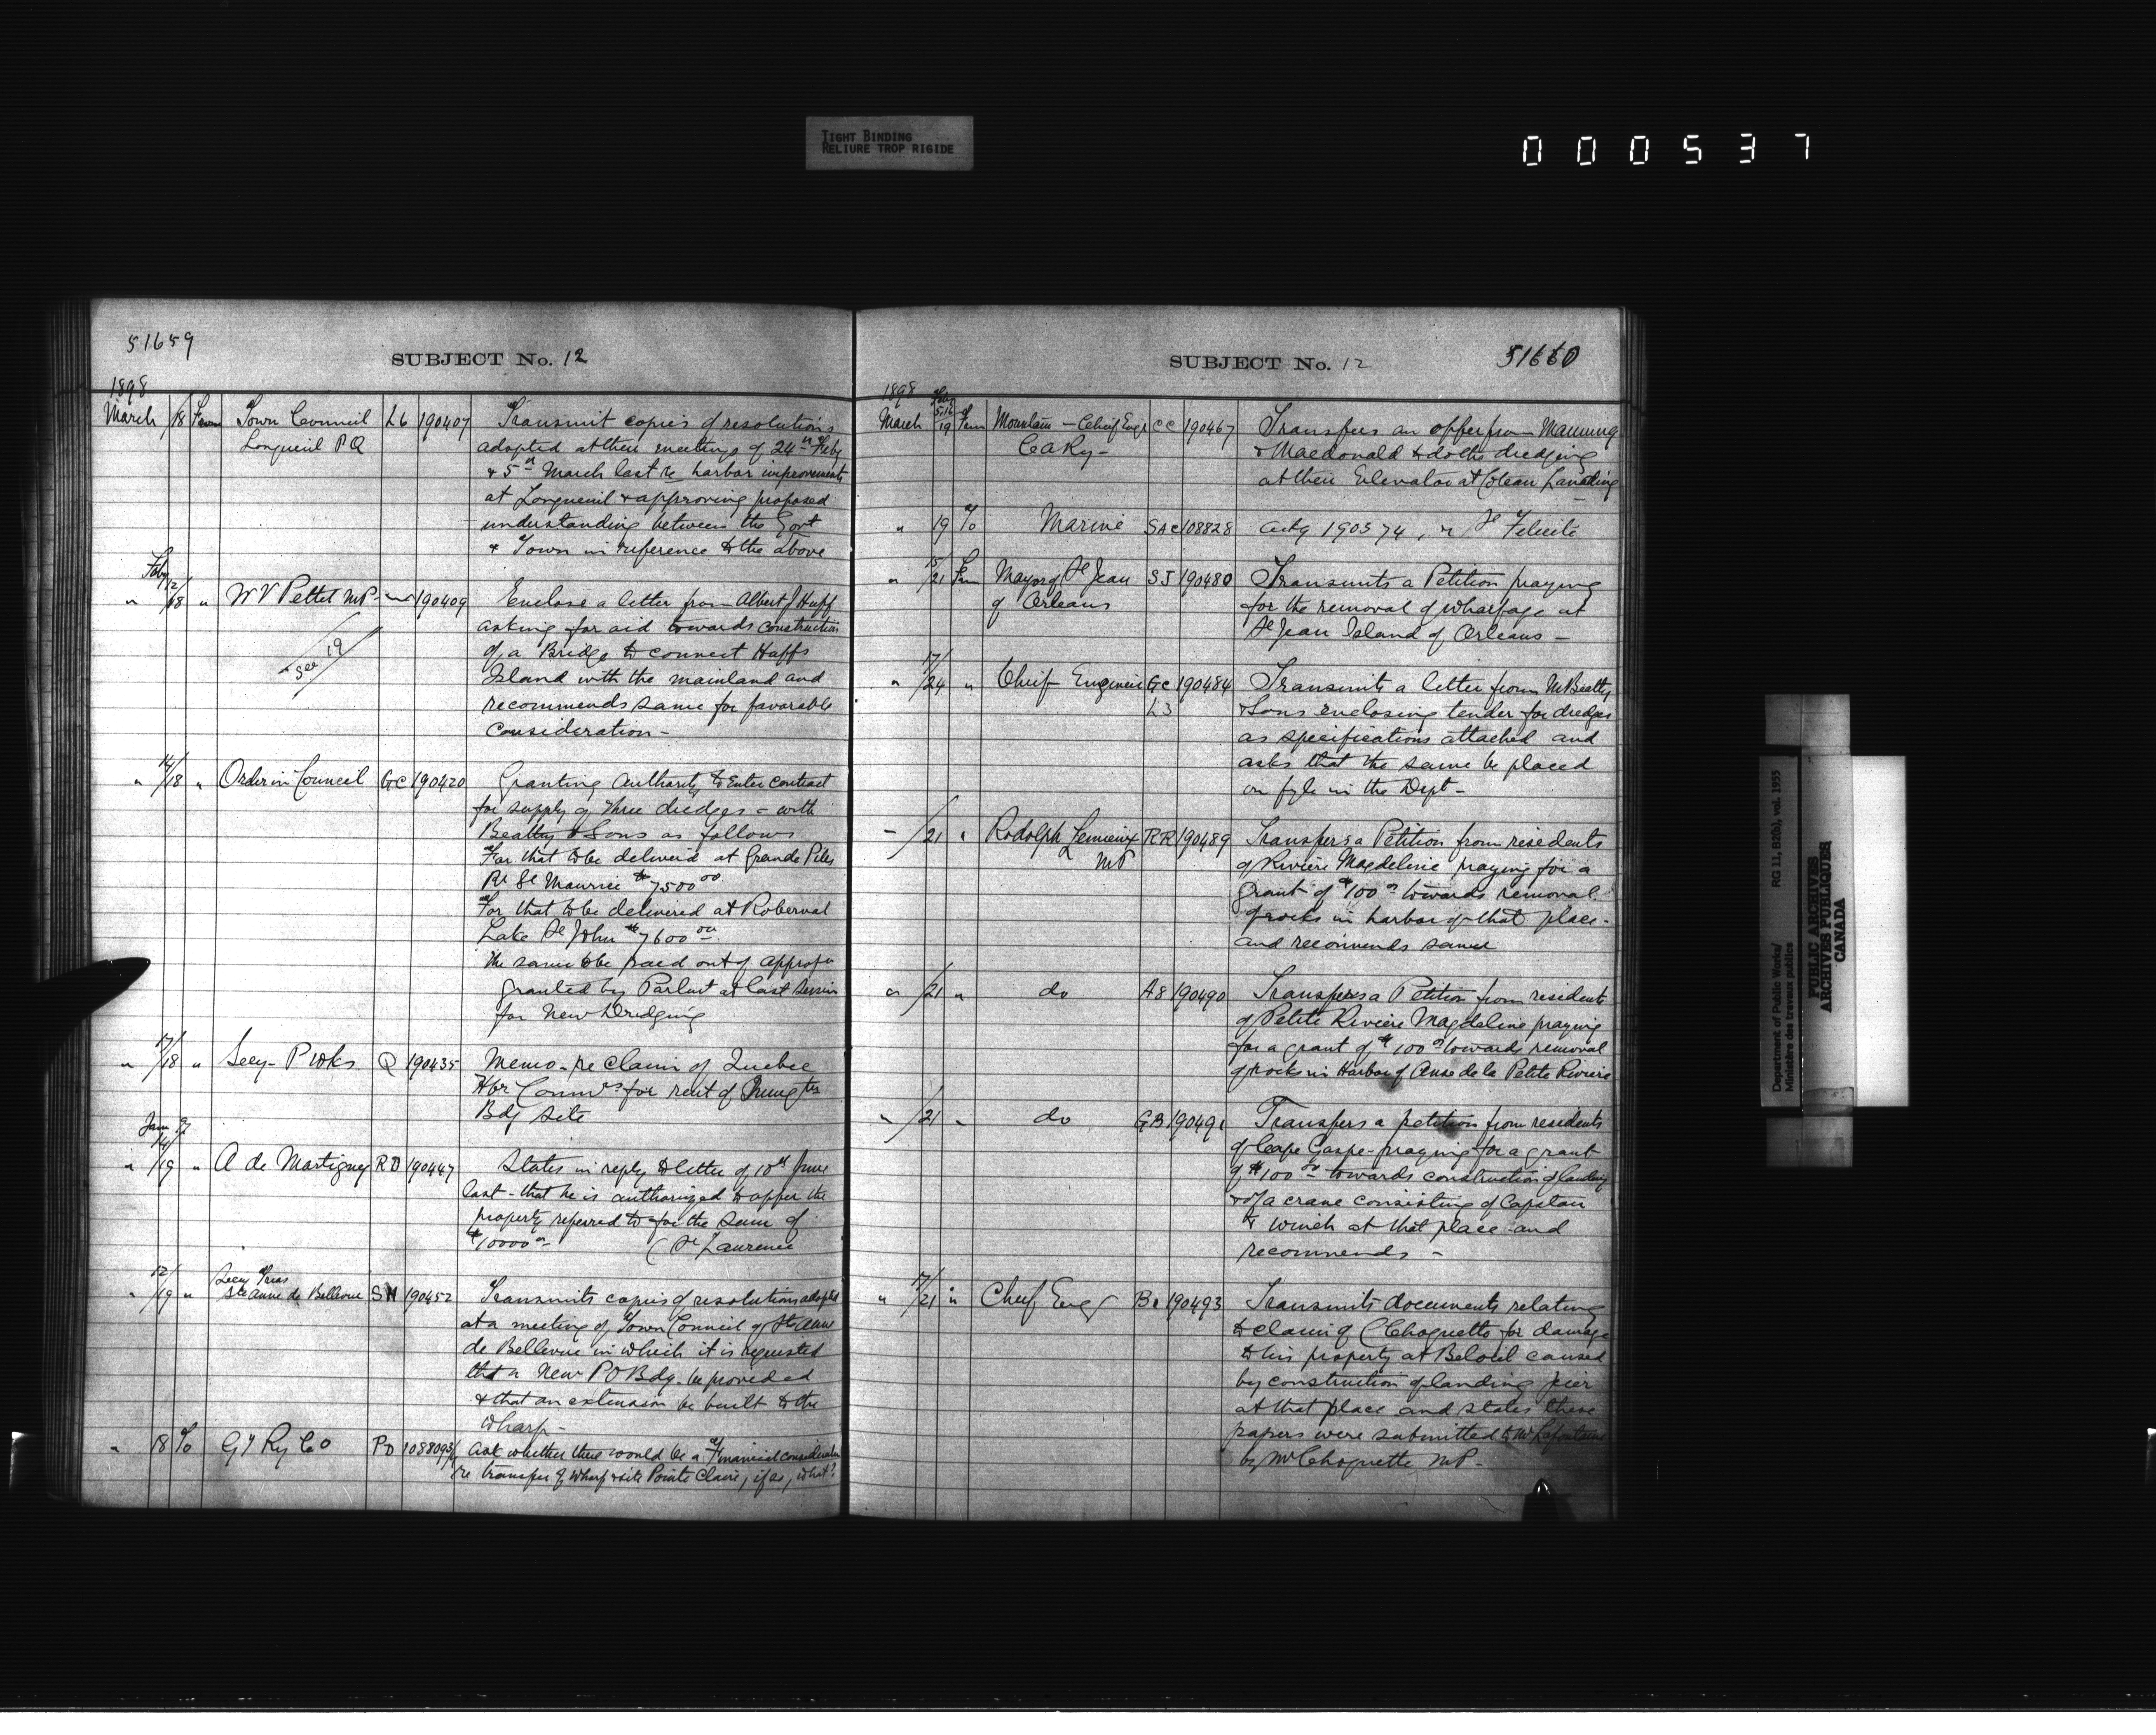 TIGHT BINDING
RELIURE TROP RIGIDE
000537
51659
SUBJECT No. 12
1898
March /18 From Town Council L6 190407 Transmit copies of resolutions
Longueuil PQ adopted at their meetings of 24th Feby
& 5th March last re harbor improvements
at Longueuil & approving proposed
understanding between the Govt
& Town in reference to the above
Feby
" 12/18 " W V Pettet MP 190409 Enclose a letter from Albert J Huff
asking for aid towards construction
see 19
of a Bridge to connect Huffs
Island with the mainland and
recommends same for favorable
consideration -
" 14/18 " Order in Council GC 190420 Granting Authority to Enter contract
for supply of three dredges - with
Beatty & Sons as follows
For that to be deliverd at Grande Piles
Rr St Maurice $7500 00.
For that to be delivered at Roberval
Lake St John $7600 00.
the same to be paid out of approp
granted by Parlmt at last Session
for New Dredging
" 17/18 " Secy- P Wks Q 190435 Memo - re Claim of Quebec
Hbr Commrs for rent of
Bdg site
Jany
" 14/19 " A de Martigney RD 190447 States in reply to letter of 10th June
last - that he is authorized to offer the
property referred to for the sum of
$10000 00 - (St Laurence
" 12/19 " Secy Treas
Ste Anne de Bellevue SN 190452 Transmits copies of resolutions adopted
at a meeting of Town Council of Ste Anne
de Bellevue in which it is requested
that a New PO Bdg. be provided
& that an extension be built to the
Wharf -
" 18 To G T Ry Co PD 108809 Ask whether there would be a Financial consideration
re transfer of Wharf & site Pointe Claire, if so, what?
SUBJECT No. 12
51660
1898
March 19 From Mountain - Chief Engr CC 190467 Transfers an offer from Manning
CA Ry - & Macdonald to do the dredging
at their Elevator at Coteau Landing
" 19 To Marine SAC 108828 ackg 190374, re St Felicité
" 15/21 From Mayor of St Jean SJ 190480 Transmits a Petition praying
of Orleans for the removal of wharfage at
St Jean Island of Orleans -
" 17/24 " Cheif Engineer GC 190484 Transmits a letter from M Beatty
L3 & Sons enclosing tender for dredges
as specifications attached and
asks that the same be placed
on fyle in the Dept -
- /21 " Rodolph Lemieux RR 190489 Transfers a Petition from residents
MP of Riviere Magdeline praying for a
grant of $100 00 towards removal
of rocks in harbor of that place -
and recomends same
" /21 " do A8 190490 Transfers a Petition from residents
of Petite Riviere Magdeline praying
for a grant of $100 00 towards removal
of rocks in Harbor of Anse de la Petite Riviere
" /21 " do GB 190491 Transfers a petition from residents
of Cape Gaspe - praying for a grant
of $100 00 - towards construction of landing
& of a crane consisting of Capstan
& winch at that place and
recommends -
" 17/21 " Cheif Eng 190493 Transmits documents relating
to claim of C Choquette for damage
to his property at Beloeil caused
by construction of landing pier
at that place and states these
papers were submitted to Mr Lafontaine
by Mr Choquette MP -
Department of Public Works/
Ministère des travaux publics
RG 11, B2(b), vol. 1955
PUBLIC ARCHIVES
ARCHIVES PUBLIQUES
CANADA